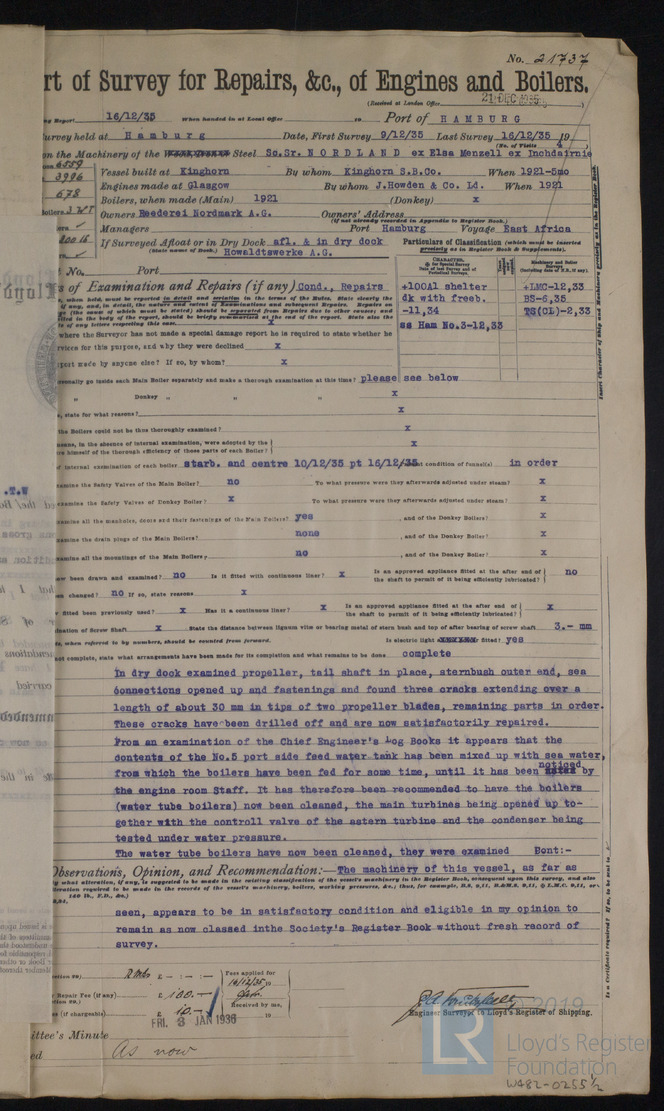 No. 21737
rt of Survey for Repairs, &c., of Engines and Boilers.
(Received at London Office 21 DEC 1935)
16/12/35 When handed in at Local Office 19 Port of HAMBURG
urvey held at Hamburg Date, First Survey 9/12/35 Last Survey 16/12/35 19
(No. of Visits 4)
on the Machinery of the Steel Sc.Sr. NORDLAND ex Elsa Menzell ex Inchdairnie
6559
3996
678
Vessel built at Kinghorn By whom Kinghorn S.B.Co. When 1921-5mo
Engines made at Glasgow By whom J.Howden & Co. Ld. When 1921
Boilers, when made (Main) 1921 (Donkey) x
Owners Reederei Nordmark A.G. Owners' Address
(If not already recorded in Appendix to Register Book.)
Managers Port Hamburg Voyage East Africa
If Surveyed Afloat or in Dry Dock afl. & in dry dock
(State name of Dock.) Howaldtswerke A.G.
Particulars of Classification (which must be inserted precisely as in the Register Book & Supplements).
No. Port
s of Examination and Repairs (if any) Cond., Repairs
+100A1 shelter
dk with freeb.
-11,34
ss Ham No.3-12,33
+LMC-12,33
BS-6,35
TS(CL)-2,33
where the Surveyor has not made a special damage report he is required to state whether he
rvices for this purpose, and why they were declined x
port made by anyone else? If so, by whom? x
sonally go inside each Main Boiler separately and make a thorough examination at this time? please see below
" Donkey " " " x
, state for what reason? x
the Boilers could not be thoroughly examined? x
means, in the absence of internal examination, were adopted by the
re himself of the thorough efficiency of those parts of each Boiler? x
of internal examination of each boiler starb. and centre 10/12/35 pt 16/12/35 condition of funnel(s) in order
xamine the Safety Valves of the Main Boiler? no To what pressure were they afterwards adjusted under steam? x
xamine the Safety Valves of Donkey Boiler? x To what pressure were they afterwards adjusted under steam? x
xamine all the manholes, doors and their fastenings of the Main Boilers? yes , and of the Donkey Boiler? x
xamine the drain plugs of the Main Boilers? none , and of the Donkey Boiler? x
xamine all the mountings of the Main Boilers? no , and of the Donkey Boiler? x
ow been drawn and examined? no Is it fitted with continuous liner? x Is an approved appliance fitted at the after end of the shaft to permit of it being efficiently lubricated? no
en changed? no If so, state reasons x
r fitted been previously used? x Has it a continuous liner? x Is an approved appliance fitted at the after end of the shaft to permit of it being efficiently lubricated? x
ination of Screw Shaft x State the distance between lignum vitæ or bearing metal of stern bush and top of after bearing of screw shaft 3.- mm
ds, when referred to by numbers, should be counted from forward. Is electric light fitted? yes
not complete, state what arrangements have been made for its completion and what remains to be done complete
In dry dock examined propeller, tail shaft in place, sternbush outer end, sea
connections opened up and fastenings and found three cracks extending over a
length of about 30 mm in tips of two propeller blades, remaining parts in order.
These cracks have been drilled off and are now satisfactorily repaired.
From an examination of the Chief Engineer's Log Books it appears that the
contents of the No.5 port side feed water tank has been mixed up with sea water,
from which the boilers have been fed for some time, until it has been noticed by
the engine room Staff. It has therefore been recommended to have the boilers
(water tube boilers) now been cleaned, the main turbines being opened up to-
gether with the controll valve of the astern turbine and the condenser being
tested under water pressure.
The water tube boilers have now been cleaned, they were examined Cont:-
Observations, Opinion, and Recommendation:— The machinery of this vessel, as far as
seen, appears to be in satisfactory condition and eligible in my opinion to
remain as now classed inthe Society's Register Book without fresh record of
survey.
2 Mbs £ - : - : - Fees applied for
16/12/35 19
Repair Fee (if any) £ 100.—
Received by me,
(if chargeable) £ 10.— 19
FRI. 3 JAN 1936
Engineer Surveyor to Lloyd's Register of Shipping.
ittee's Minute
ed As now
© 2019
LR
Lloyd's Register
Foundation
W482-0255½